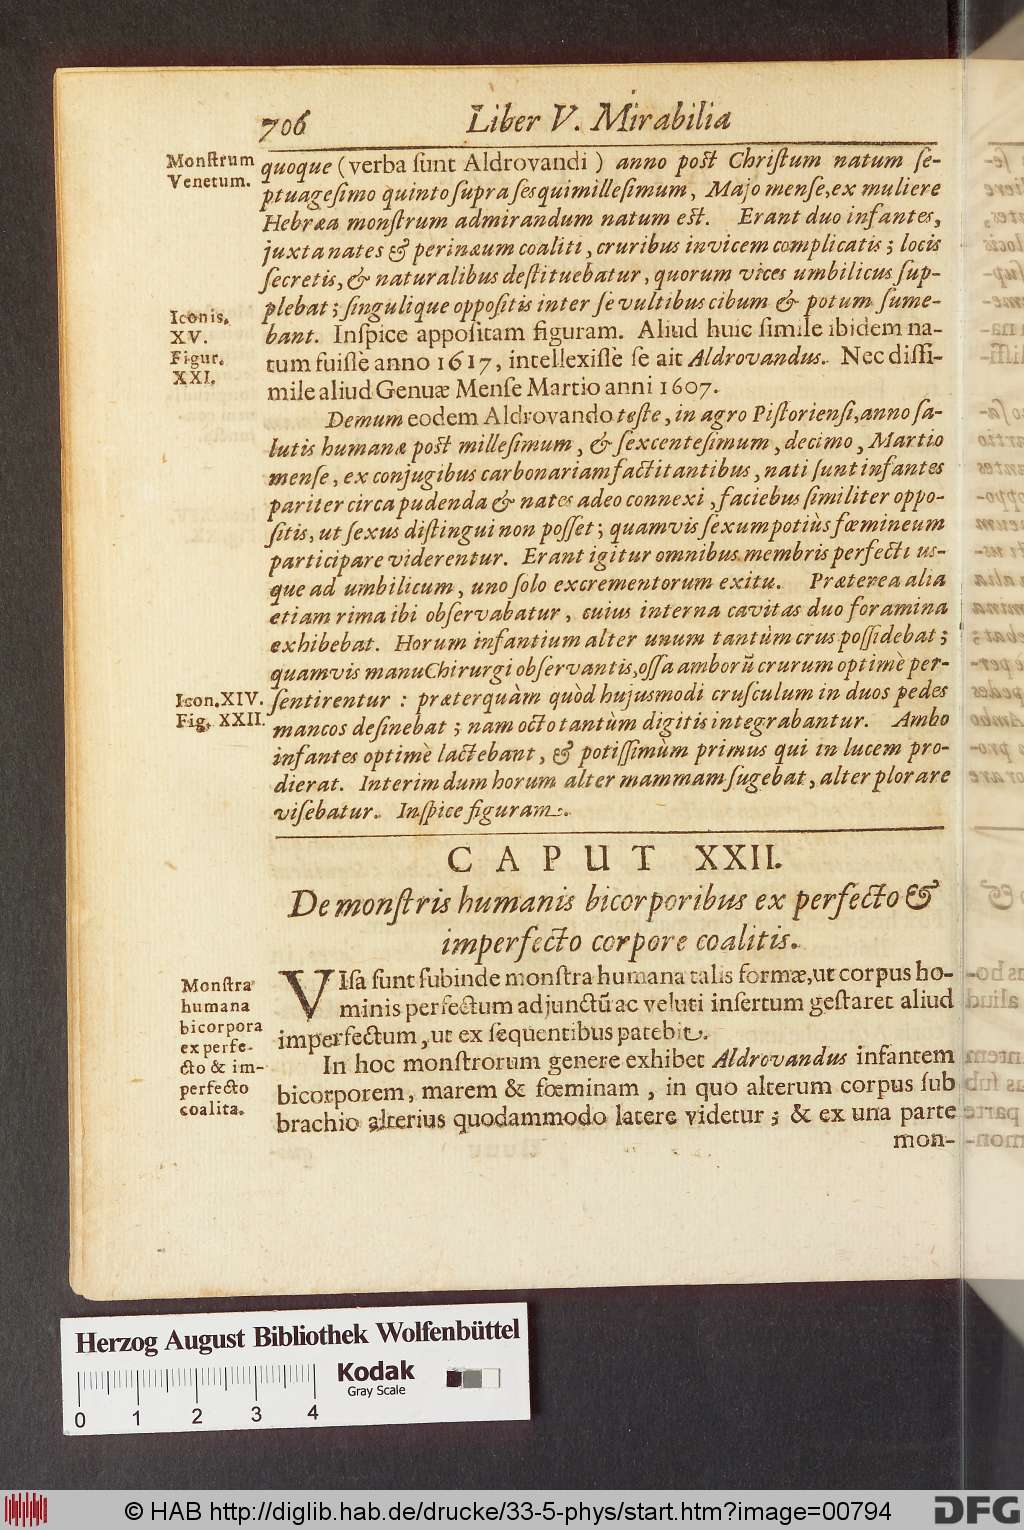 706 Liber V. Mirabilia
Monſtrum
Venetum.
quoque (verba ſunt Aldrovandi) anno poſt Chriſtum natum ſe-
ptuageſimo quinto ſupra ſesquimilleſimum, Majo menſe, ex muliere
Hebræa monſtrum admirandum natum eſt. Erant duo infantes,
juxta nates & perinæum coaliti, cruribus invicem complicatis; locis
ſecretis, & naturalibus deſtituebatur, quorum vices umbilicus ſup-
plebat; ſingulique oppoſitis inter ſe vultibus cibum & potum ſume-
bant. Inſpice appoſitam figuram. Aliud huic ſimile ibidem na-
tum fuiſſe anno 1617, intellexiſſe ſe ait Aldrovandus. Nec diſſi-
mile aliud Genuæ Menſe Martio anni 1607.
Iconis.
XV.
Figur.
XXI.
Demum eodem Aldrovando teſte, in agro Piſtorienſi, anno ſa-
lutis humanæ poſt milleſimum, & ſexcenteſimum, decimo, Martio
menſe, ex conjugibus carbonariam factitantibus, nati ſunt infantes
pariter circa pudenda & nates adeo connexi, faciebus ſimiliter oppo-
ſitis, ut ſexus diſtingui non poſſet; quamvis ſexum potiùs fœmineum
participare viderentur. Erant igitur omnibus membris perfecti us-
que ad umbilicum, uno ſolo excrementorum exitu. Præterea alia
etiam rima ibi obſervabatur, cuius interna cavitas duo foramina
exhibebat. Horum infantium alter unum tantùm crus poſſidebat;
quamvis manu Chirurgi obſervantis, oſſa amborũ crurum optimè per-
ſentirentur: præterquàm quòd hujusmodi cruſculum in duos pedes
mancos deſinebat; nam octo tantùm digitis integrabantur. Ambo
infantes optimè lactebant, & potiſſimùm primus qui in lucem pro-
dierat. Interim dum horum alter mammam ſugebat, alter plorare
viſebatur. Inſpice figuram.
Icon. XIV.
Fig. XXII.
CAPUT XXII.
De monſtris humanis bicorporibus ex perfecto &
imperfecto corpore coalitis.
Monſtra
humana
bicorpora
ex perfe-
cto & im-
perfecto
coalita.
VIſa ſunt ſubinde monſtra humana talis formæ, ut corpus ho-
minis perfectum adjunctũ ac veluti inſertum geſtaret aliud
imperfectum, ut ex ſequentibus patebit.
In hoc monſtrorum genere exhibet Aldrovandus infantem
bicorporem, marem & fœminam, in quo alterum corpus ſub
brachio alterius quodammodo latere videtur; & ex una parte
mon-
Herzog August Bibliothek Wolfenbüttel
Kodak
Gray Scale
0 1 2 3 4
© HAB http://diglib.hab.de/drucke/33-5-phys/start.htm?image=00794
DFG